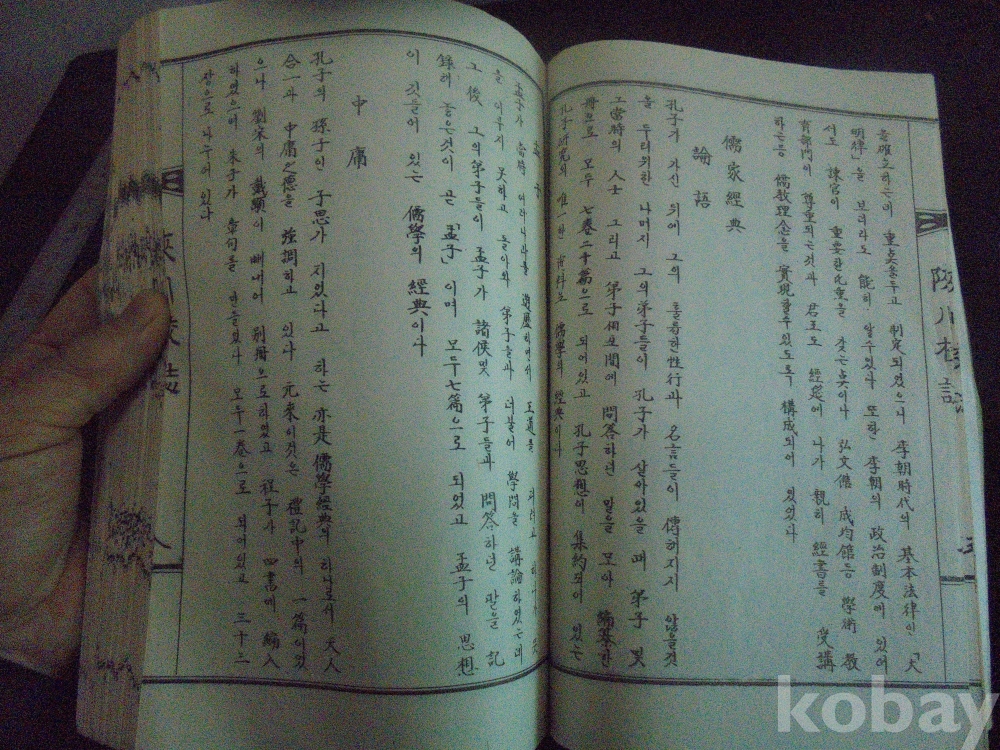 을確立하는데 重点을두고 制定되었으니 李朝時代의 基本法律인 「大
明律」을 보더라도 能히 알수있다 또한 李朝의 政治制度에 있어
서도 諫官이 重要한比重을 갖는点이나 弘文館 成均館등 學術 敎
育部門이 尊重되는것과 君王도 經筵에 나가 親히 經書를 受講
하는등 儒敎理念을 實現할수있도록 構成되어 있었다
儒家經典
論語
孔子가 가신 뒤에 그의 훌륭한性行과 名言들이 傳해지지 않을것
을 두려워한 나머지 그의弟子들이 孔子가 살아있을때 弟子 및
그當時의 人士 그리고 弟子相互間에 問答하던 말을 모아 編纂한
冊으로 모두 七卷二十篇으로 되어있고 孔子思想이 集約되어 있는
孔子研究의 唯一한 資料노 儒學의 經典이다
孟子
孟子가 當時 여러나라를 遊歷하면서 王道를
을 이루지 못하고 돌아와 弟子들과 더불어 學問을 講論하였는데
그 後 그의弟子들이 孟子가 諸侯및 弟子들과 問答하던 말을 記
錄해 놓은것이 곧 「孟子」이며 모두七篇으로 되었고 孟子의 思想
이 깃들어 있는 儒學의 經典이다
中庸
孔子의 孫子인 子思가 지었다고 하는 亦是 儒學經典의 하나로서 天人
合一과 中庸之德을 強調하고 있다 元來이것은 禮記中의 一篇이었
으나 劉宋의 戴顒이 빼내어 別冊으로하였고 程子가 四書에 編入
하였으며 朱子가 章句를 만들었다 모두一卷으로 되어있고 三十三
장으로 나누어 있다
kobay